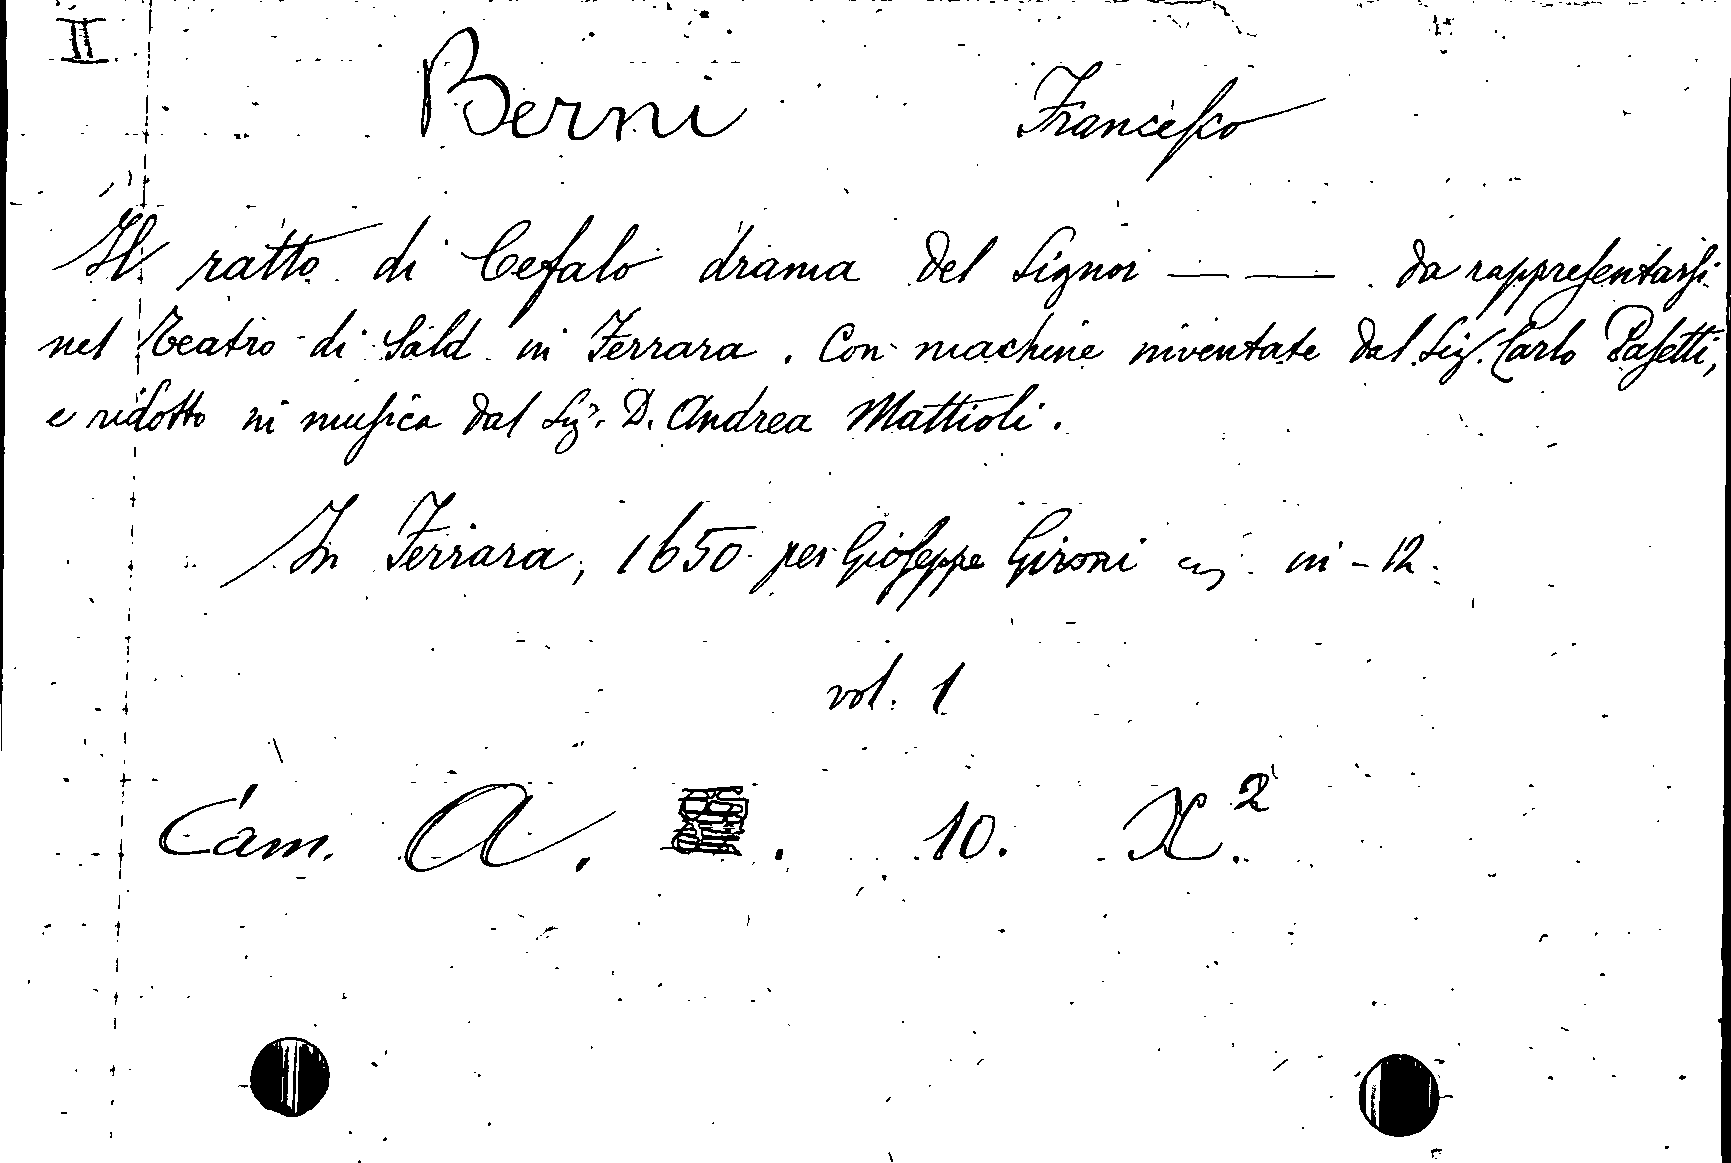 II
Berni Francesco
Il ratto di Cefalo drama del Signor — — da rappresentarsi
nel Teatro di Sala in Ferrara. Con machine inventate dal Sig. Carlo Pasetti,
e ridotto in musica dal Sig. D. Andrea Mattioli.
In Ferrara, 1650 per Gioseppe Gironi in-12.
vol. 1
Cam. A. 10. X.2